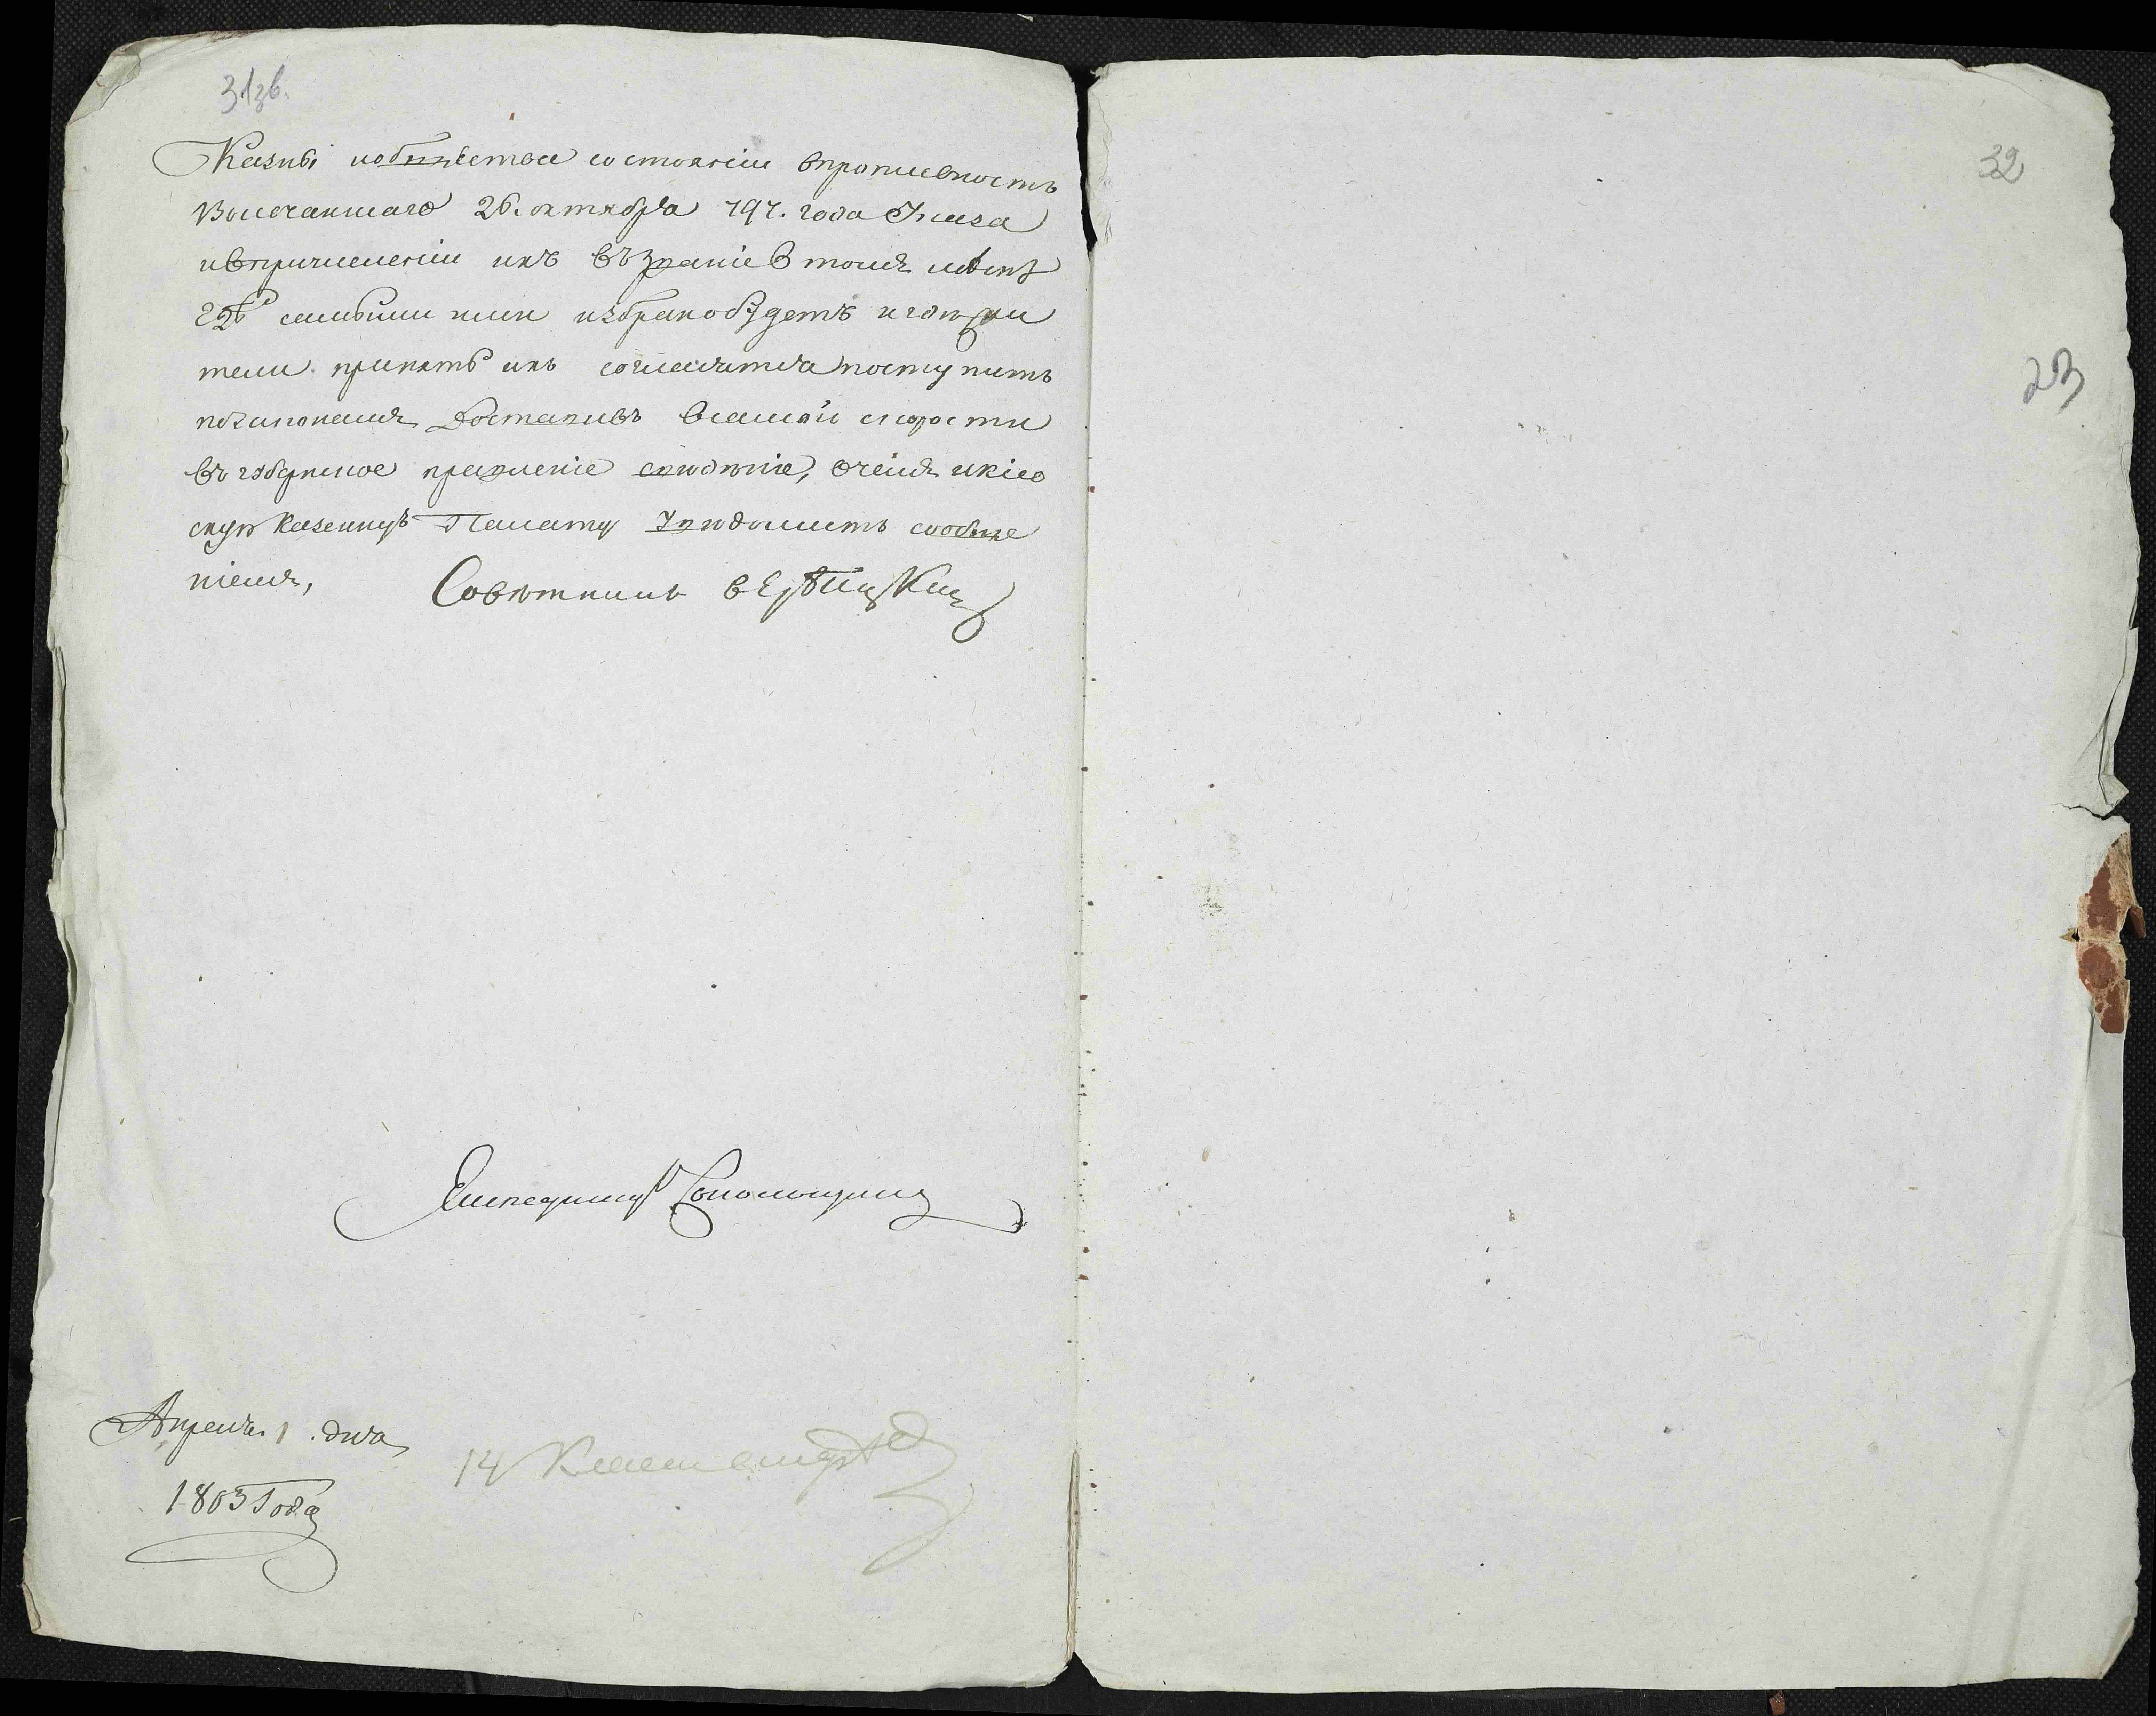 31зв.
Казны иобщества состоянiи впротивность
Высочайшаго 26. октября 797. года Указа
ивпричисленiи ихъ възванiе втомъ месте
где самыми ими избрано будетъ и
тели принять ихъ согласятся поступить
позаконамъ доставивъ всамой скорости
въ губернское правленiе сведенiе, очемъ икiев
скую казенную Палату уведомить сообще
нiемъ,
Советникъ
Апреля 1 . дня
1803 Года
14
32
23